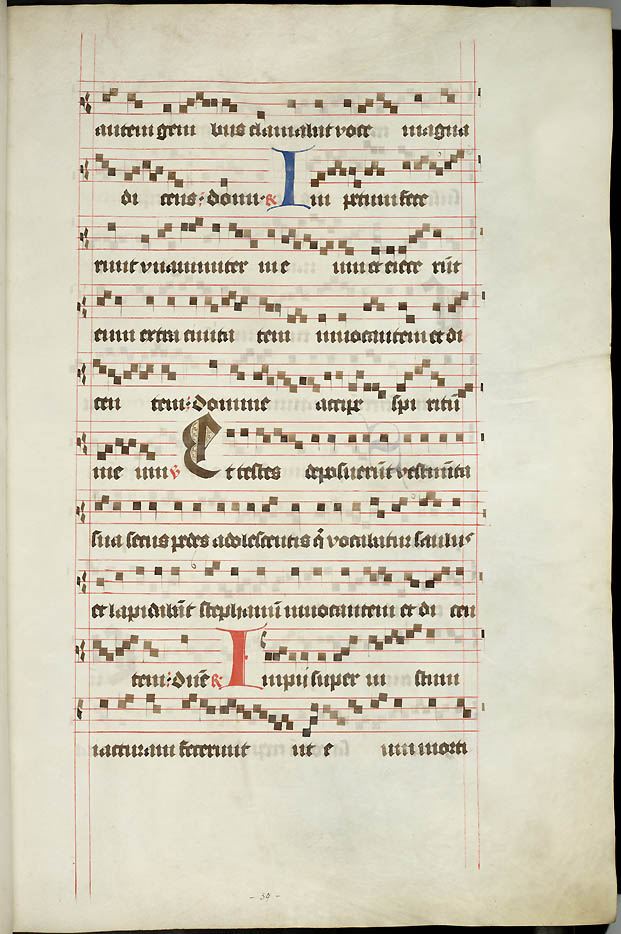 autem geni bus clamabat voce magna
di cens: domi· ℟ In petum fece
runt vnanimiter me um et eiece rūt
eum extra ciuita tem inuocantem et di
cen tem: domine accipe spi ritū
me um ℣ Et testes deposuerūt vestimēta
sua secus pedes adolescentis q̄ vocabatur saulus
et lapidabāt stephanū inuocantem et di cen
tem: dn̄e ℟ Impij super iu stum
iacturam fecerunt ut e um morti
- 39 -